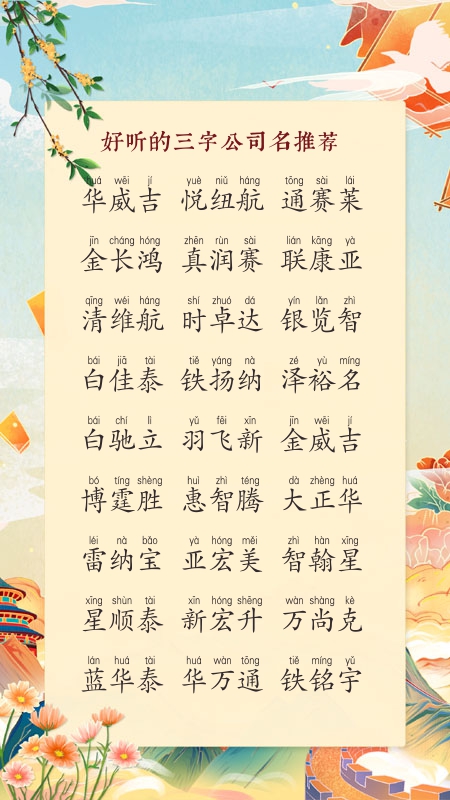 好听的三字公司名推荐
huá wēi jí yuè niǔ háng tōng sài lái
华威吉 悦纽航 通赛莱
jīn cháng hóng zhēn rùn sài lián kāng yà
金长鸿 真润赛 联康亚
qīng wéi háng shí zhuó dá yín lǎn zhì
清维航 时卓达 银览智
bái jiā tài tiě yáng nà zé yù míng
白佳泰 铁扬纳 泽裕名
bái chí lì yǔ fēi xīn jīn wēi jí
白驰立 羽飞新 金威吉
bó tíng shèng huì zhì téng dà zhèng huá
博霆胜 惠智腾 大正华
léi nà bǎo yà hóng měi zhì hàn xīng
雷纳宝 亚宏美 智翰星
xīng shùn tài xīn hóng shēng wàn shàng kè
星顺泰 新宏升 万尚克
lán huá tài huá wàn tōng tiě míng yǔ
蓝华泰 华万通 铁铭宇